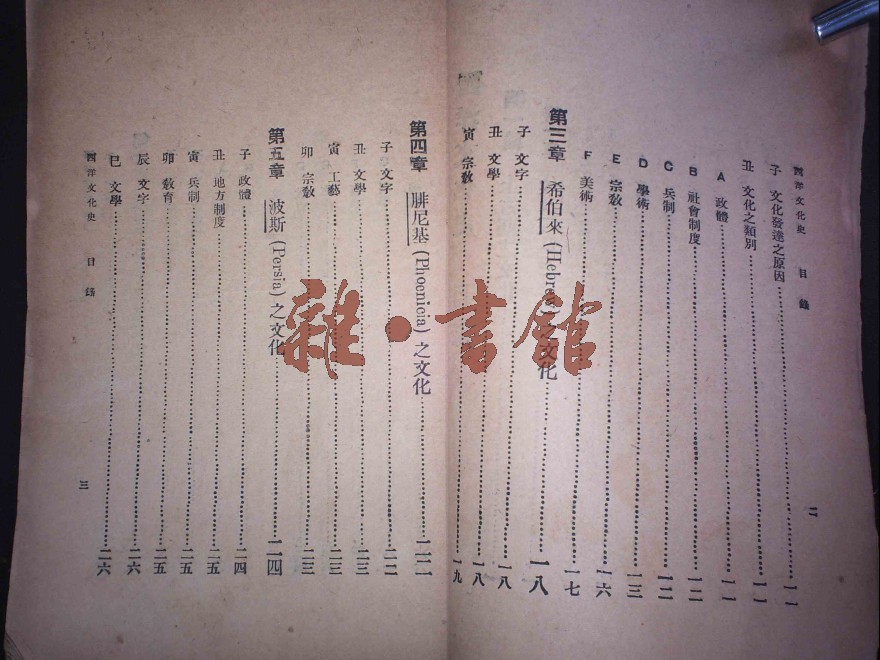 西洋文化史 目錄 二
子 文化發達之原因……一一
丑 文化之類別……一一
A 政體……一一
B 社會制度……一二
C 兵制……一二
D 學術……一三
E 宗教……一六
F 美術……一七
第三章 希伯來(Hebrew)之文化……一八
子 文字……一八
丑 文學……一八
寅 宗教……一九
第四章 腓尼基(Phoenicia)之文化……二二
子 文字……二二
丑 文學……二三
寅 工藝……二三
卯 宗教……二三
第五章 波斯(Persia)之文化……二四
子 政體……二四
丑 地方制度……二五
寅 兵制……二五
卯 教育……二五
辰 文字……二六
巳 文學……二六
西洋文化史 目錄 三
雜·書館